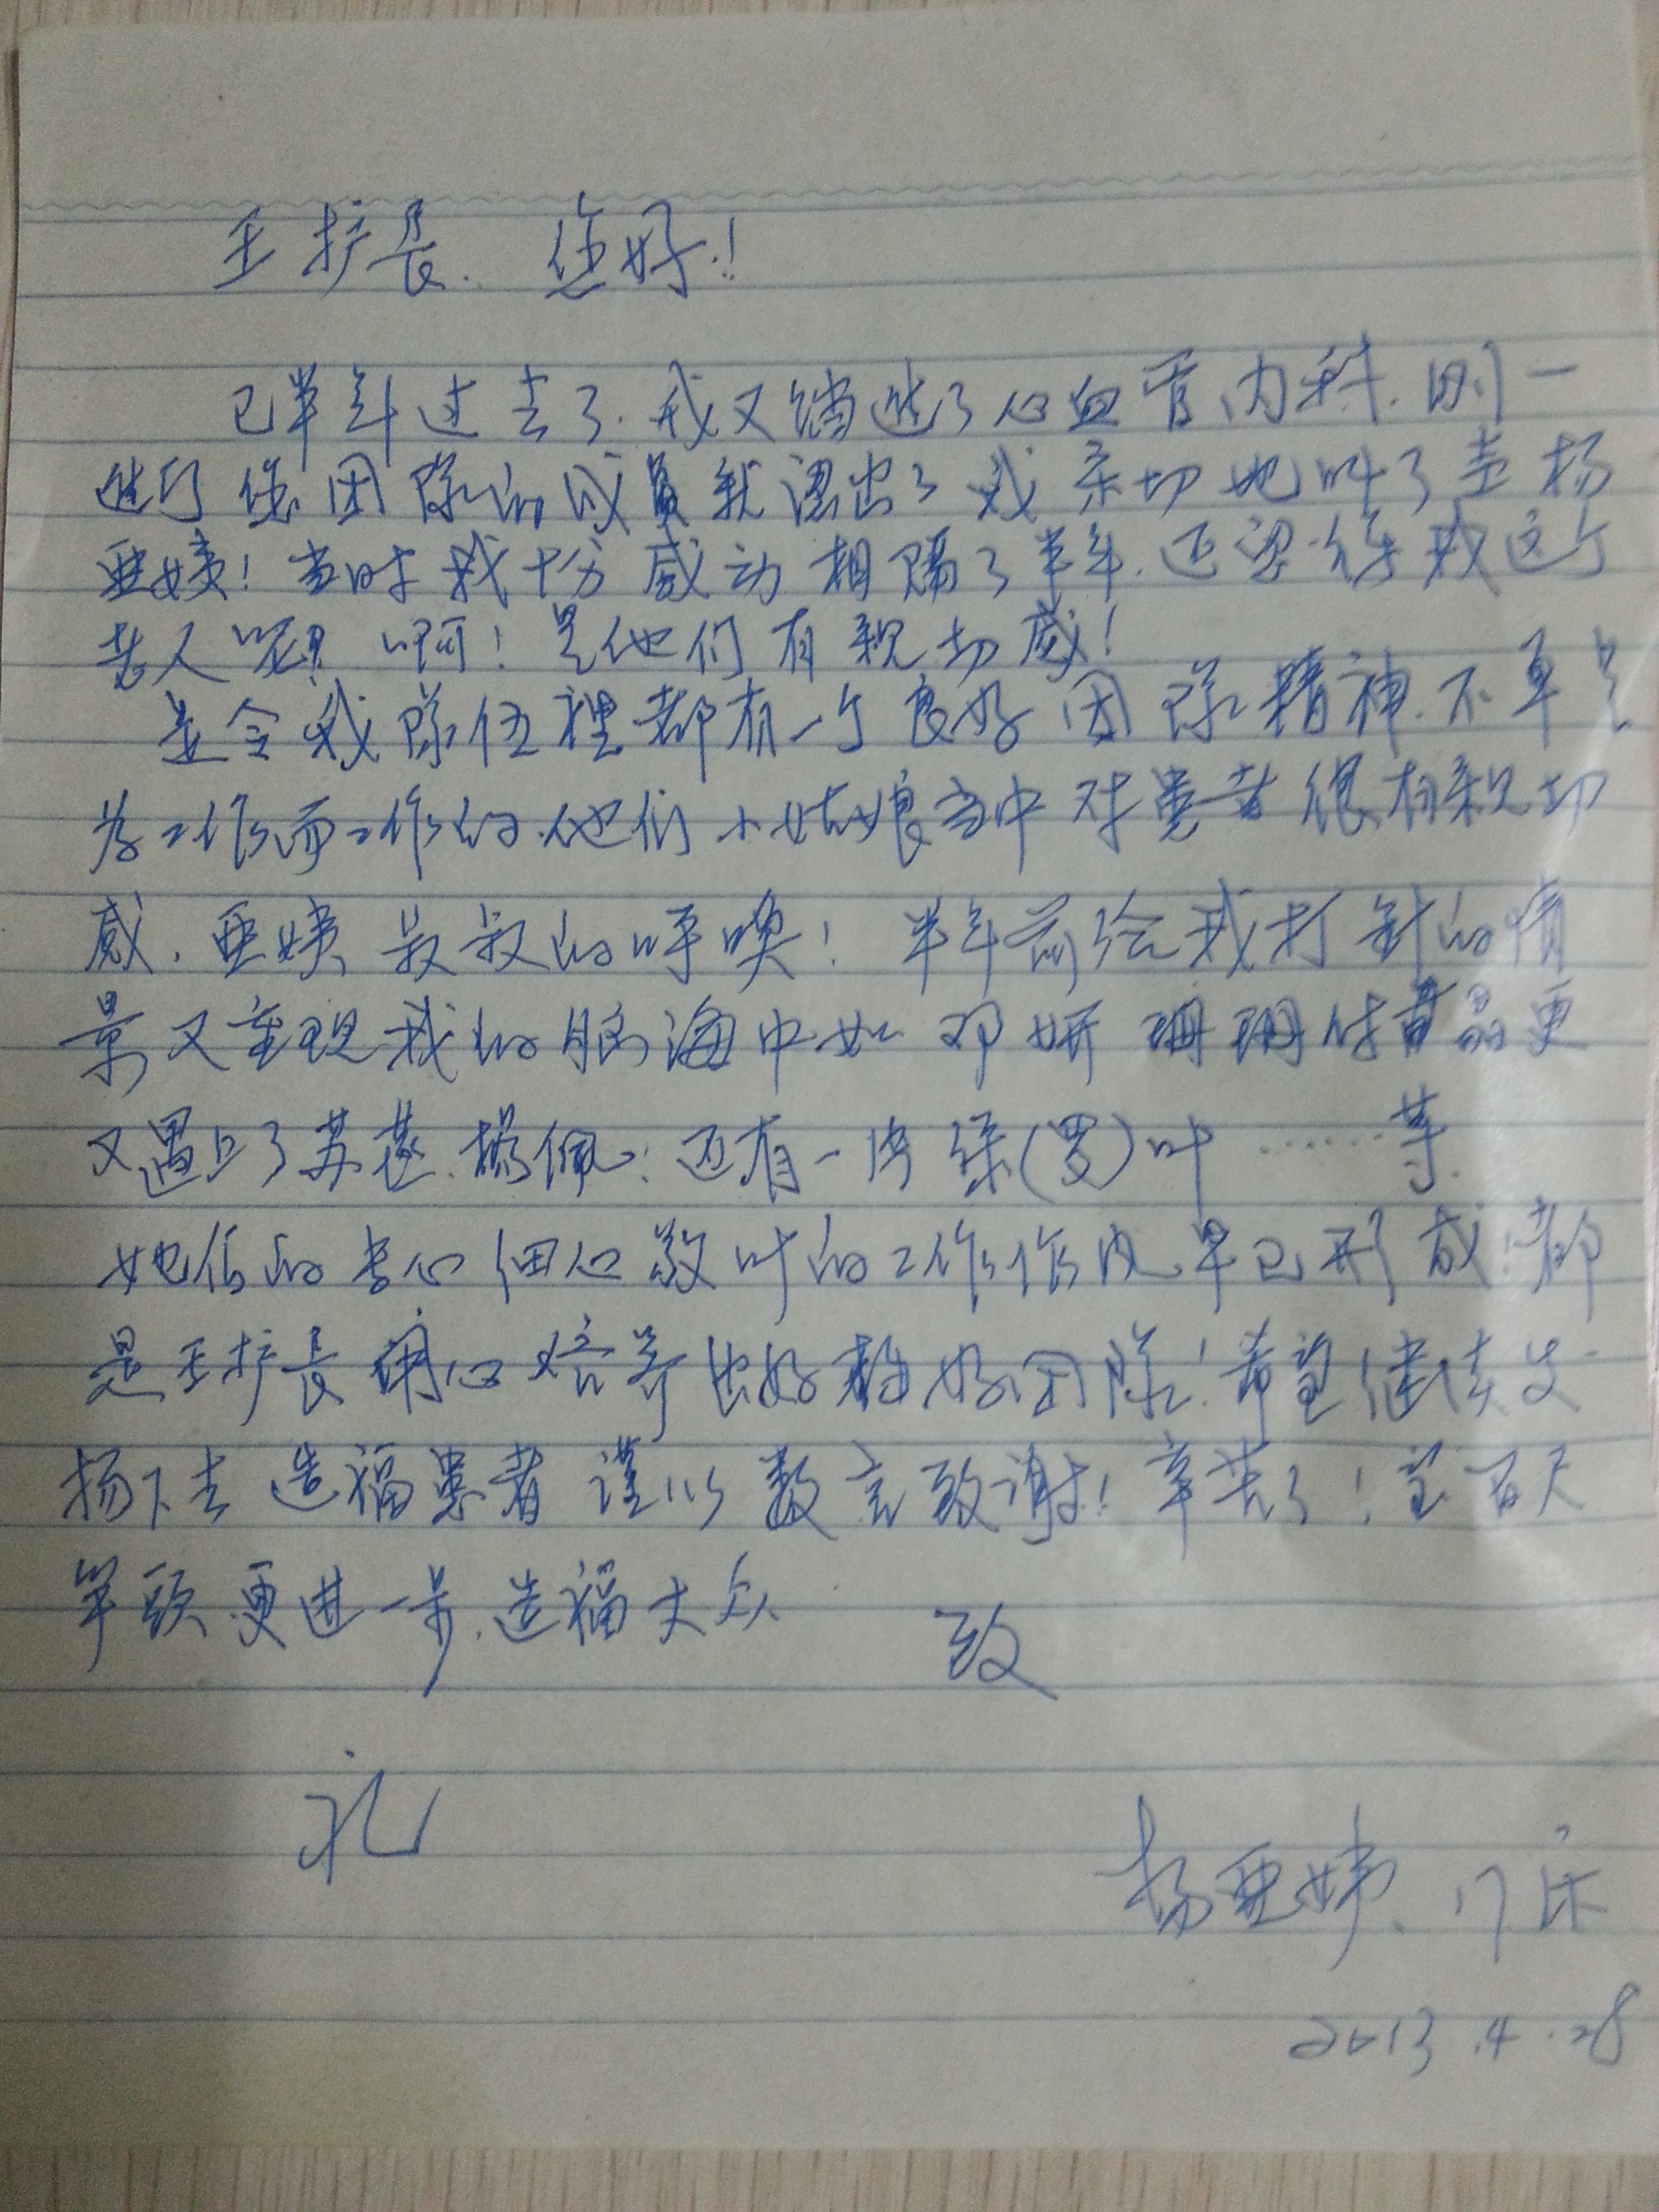 王护长. 您好!
已半年过去了. 我又踏进了心血管内科. 刚一
进门 您团队的成员就认出了我 亲切地叫了圭杨
亚姨! 当时我十分感动 相隔了半年. 还认得我这个
老人呢! 啊! 是他们有亲切感!
是令我队伍裡都有一个良好团队精神. 不单是
为工作而工作的. 他们小姑娘当中对患者很有亲切
感. 亚姨 叔叔的呼唤! 半年前给我打针的情
景又重现我的脑海中如 邓妍 珊珊 更
又遇上了苏甚. 杨佩: 还有一片绿(罗)叶……等.
她们的专心细心敬叶的工作作风早已形成! 都
是王护长用心培养出好 好团队! 希望继续发
扬下去 造福患者 谨以数言致谢! 辛苦了! 百尺
竿頭更进一步. 造福大众 致
礼
杨亚姨. 17床
2013.4.28